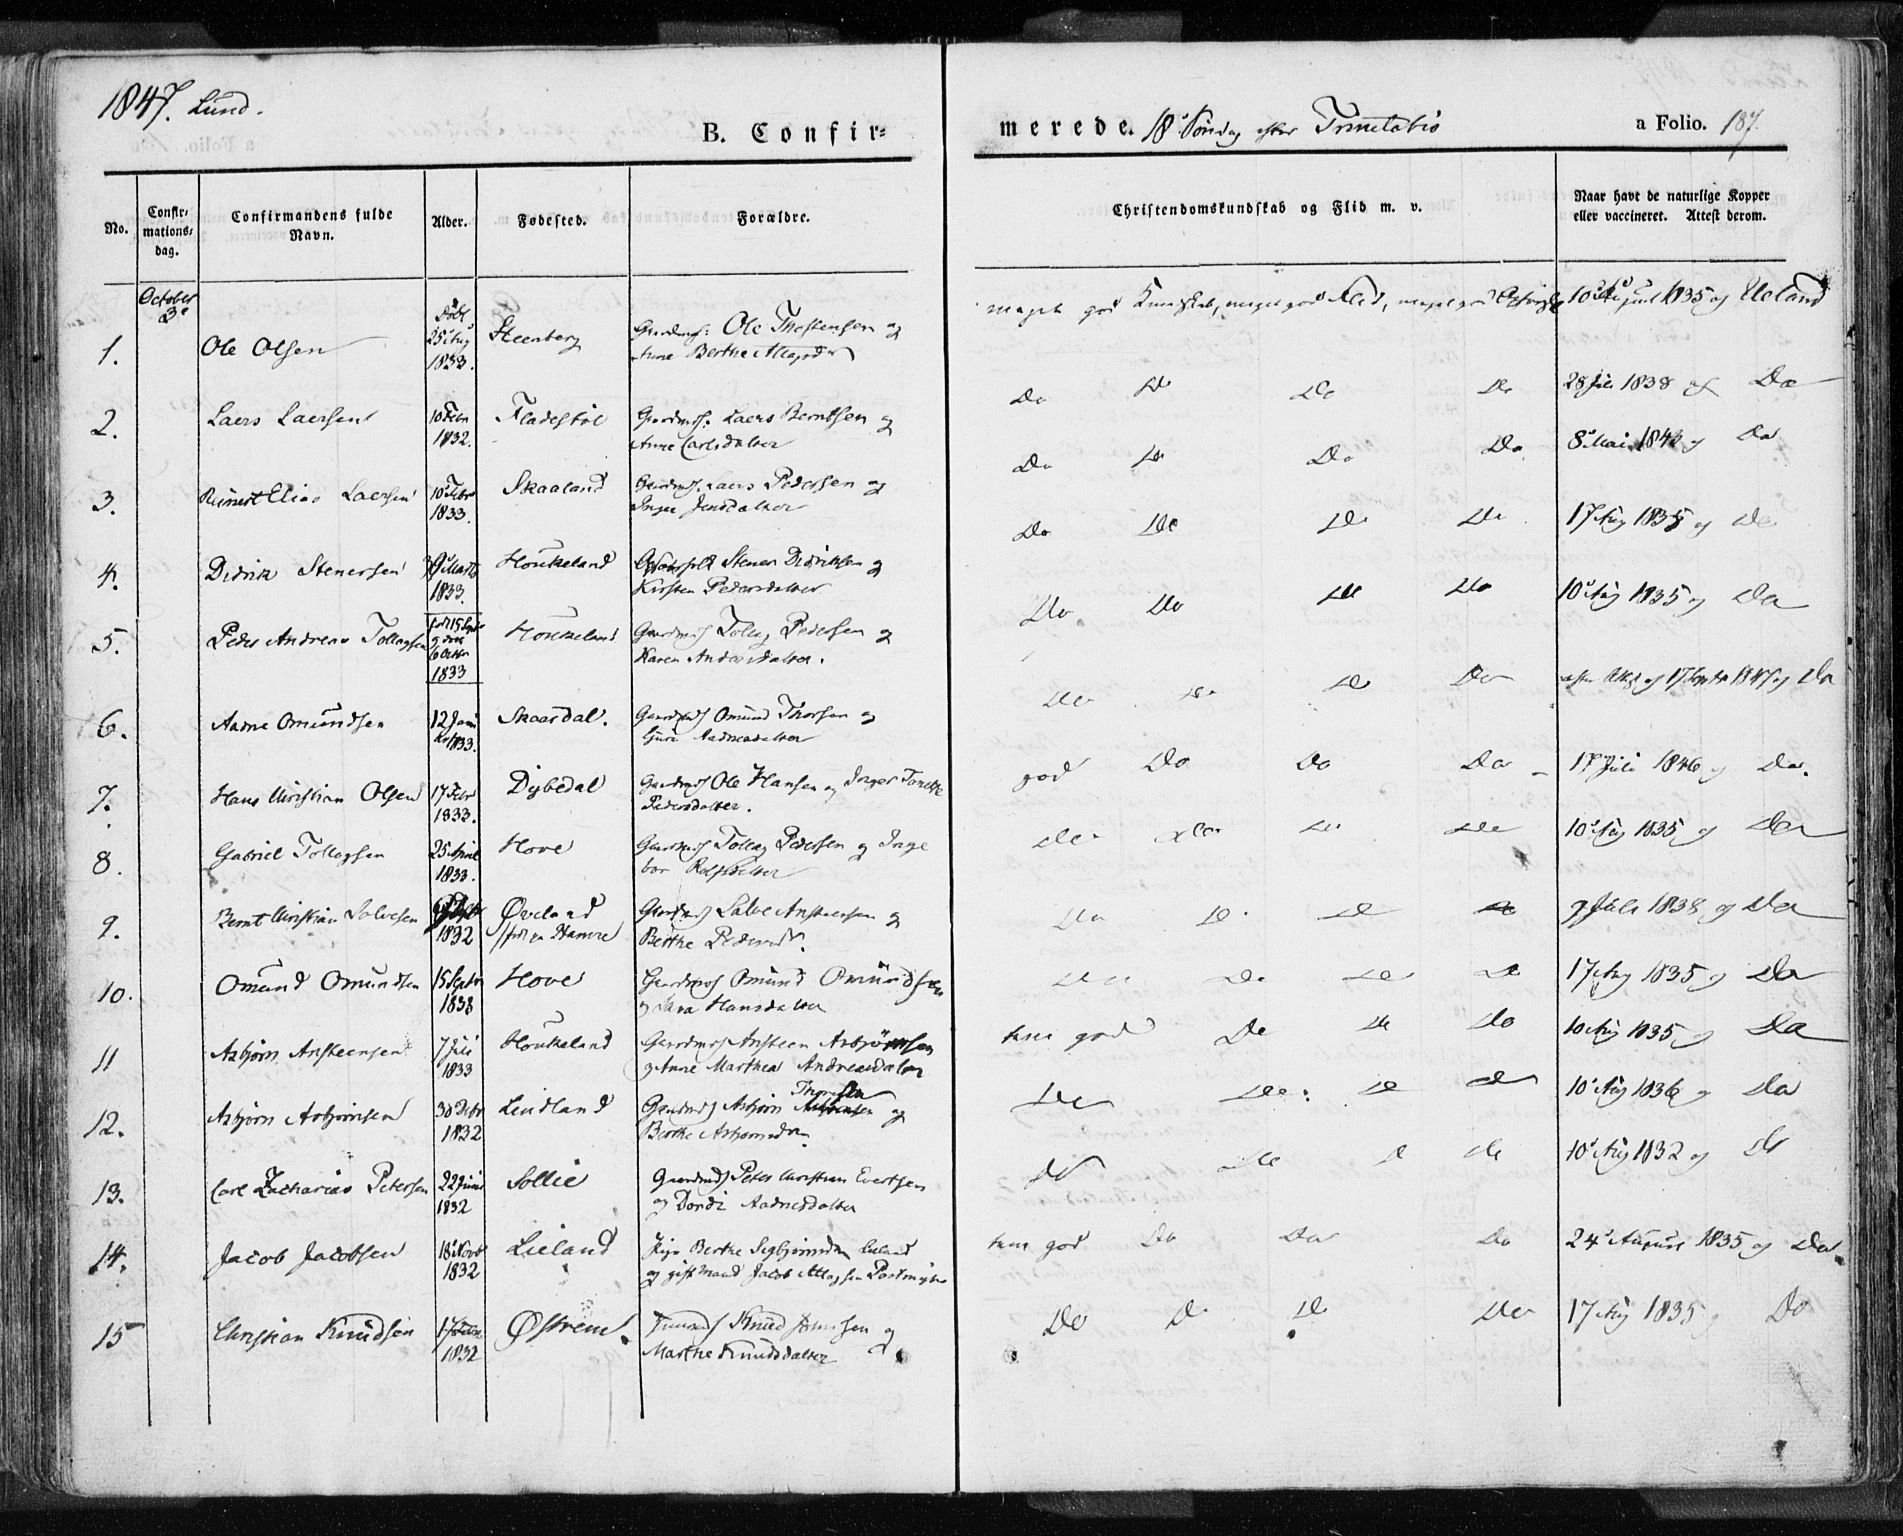 1847. Lund.
B. Confir=
merede. 18 Søndag efter Trinitatis
a Folio. 187.
No.
Confir-
mations-
dag.
Confirmandens fulde
Navn.
Alder.
Fødested.
Forældre.
Christendomskundskab og Flid m. v.
Naar havt de naturlige Kopper
eller vaccineret. Attest derom.
October
3
1. Ole Olsen
født
25 Aug
1833.
Steenberg
Gaardmd. Ole Thostensen og
Anne Berthe
meget god Kundskab, meget god Flid, meget god
10 August 1835 og Ueland
2. Laers Laersen
10 Febr
1832.
Fladestøl
Gaardmd. Laers Berntsen og
Anne Carlsdatter
Do Do Do Do
28 Juli 1838 og Do
3. Reinert Elias Laersen
10 Febr
1833.
Skaaland
Gaardmd. Laers Pedersen og
Inger Jensdatter
Do Do Do Do
8 Mai 1843 og Do
4. Didrik Stenersen
Marts
1833.
Houkeland
Stener Didriksen og
Kirsten Pedersdatter
Do Do Do Do
17 Aug 1835 og Do
5. Peder Andreas Tollagsen
1833
Houkeland
Gaardmd Tollag Pedersen og
Karen Andersdatter.
Do Do Do Do
10 Aug 1835 og Do
6. Aadne Omundsen
12 Juni
1833.
Skaardal.
Gaardmd Omund Thorsen og
Guri Aadnesdatter
Do Do Do Do
og 17 Septbr 1847 og Do
7. Hans Christian Olsen
17 Febr
1833.
Dybedal
Gaardmd Ole Hansen og Inger Tonette
Pedersdatter.
god Do Do Do
17 Juli 1846 og Do.
8. Gabriel Tollagsen
25 April
1833.
Hove
Gaardmd Tollag Pedersen og Inge
bor Rolfsdatter
Do Do Do Do
10 Aug 1835 og Do
9. Bernt Christian Salvesen
1832
Øveland
født paa Hamre
Gaardmd Salve Anstensen og
Berthe Pedersd.
Do Do Do Do
9 Juli 1838 og Do
10. Omund Omundsen
15 Septbr
1833
Hove
Gaardmd Omund Omundsen
og Sara Hansdatter
Do Do Do Do
17 Aug 1835 og Do
11 Asbjørn Ansteensen
7 Juli
1833
Houkeland
Gaardmd Ansteen Asbjørnsen
og Anne Marthea Andreasdatter
tem god Do Do Do
10 Aug 1835 og Do
12. Asbjørn Asbjørnsen
1832
Lindland
Thorsen
Gaardmd Asbjørn og
Berthe Asbjørnsd
Do Do: Do Do
10 Aug 1836 og Do
13. Carl Zacharias Petersen
22 Juni
1832
Sollie
Gaardmd Peter Christian Evertsen
og Dordi Aadnesdatter
Do Do Do Do
10 Aug 1832 og Do
14. Jacob Jacobsen
18 Novbr
1832
Lieland
Pige Berthe Sigbjørnsd
og gift Mand Jacob
tem god Do Do Do
24 August 1835 og Do.
15 Christian Knudsen
1832
Østrem.
Knud og
Marthe Knudsdatter
Do Do Do Do
17 Aug 1835 og Do